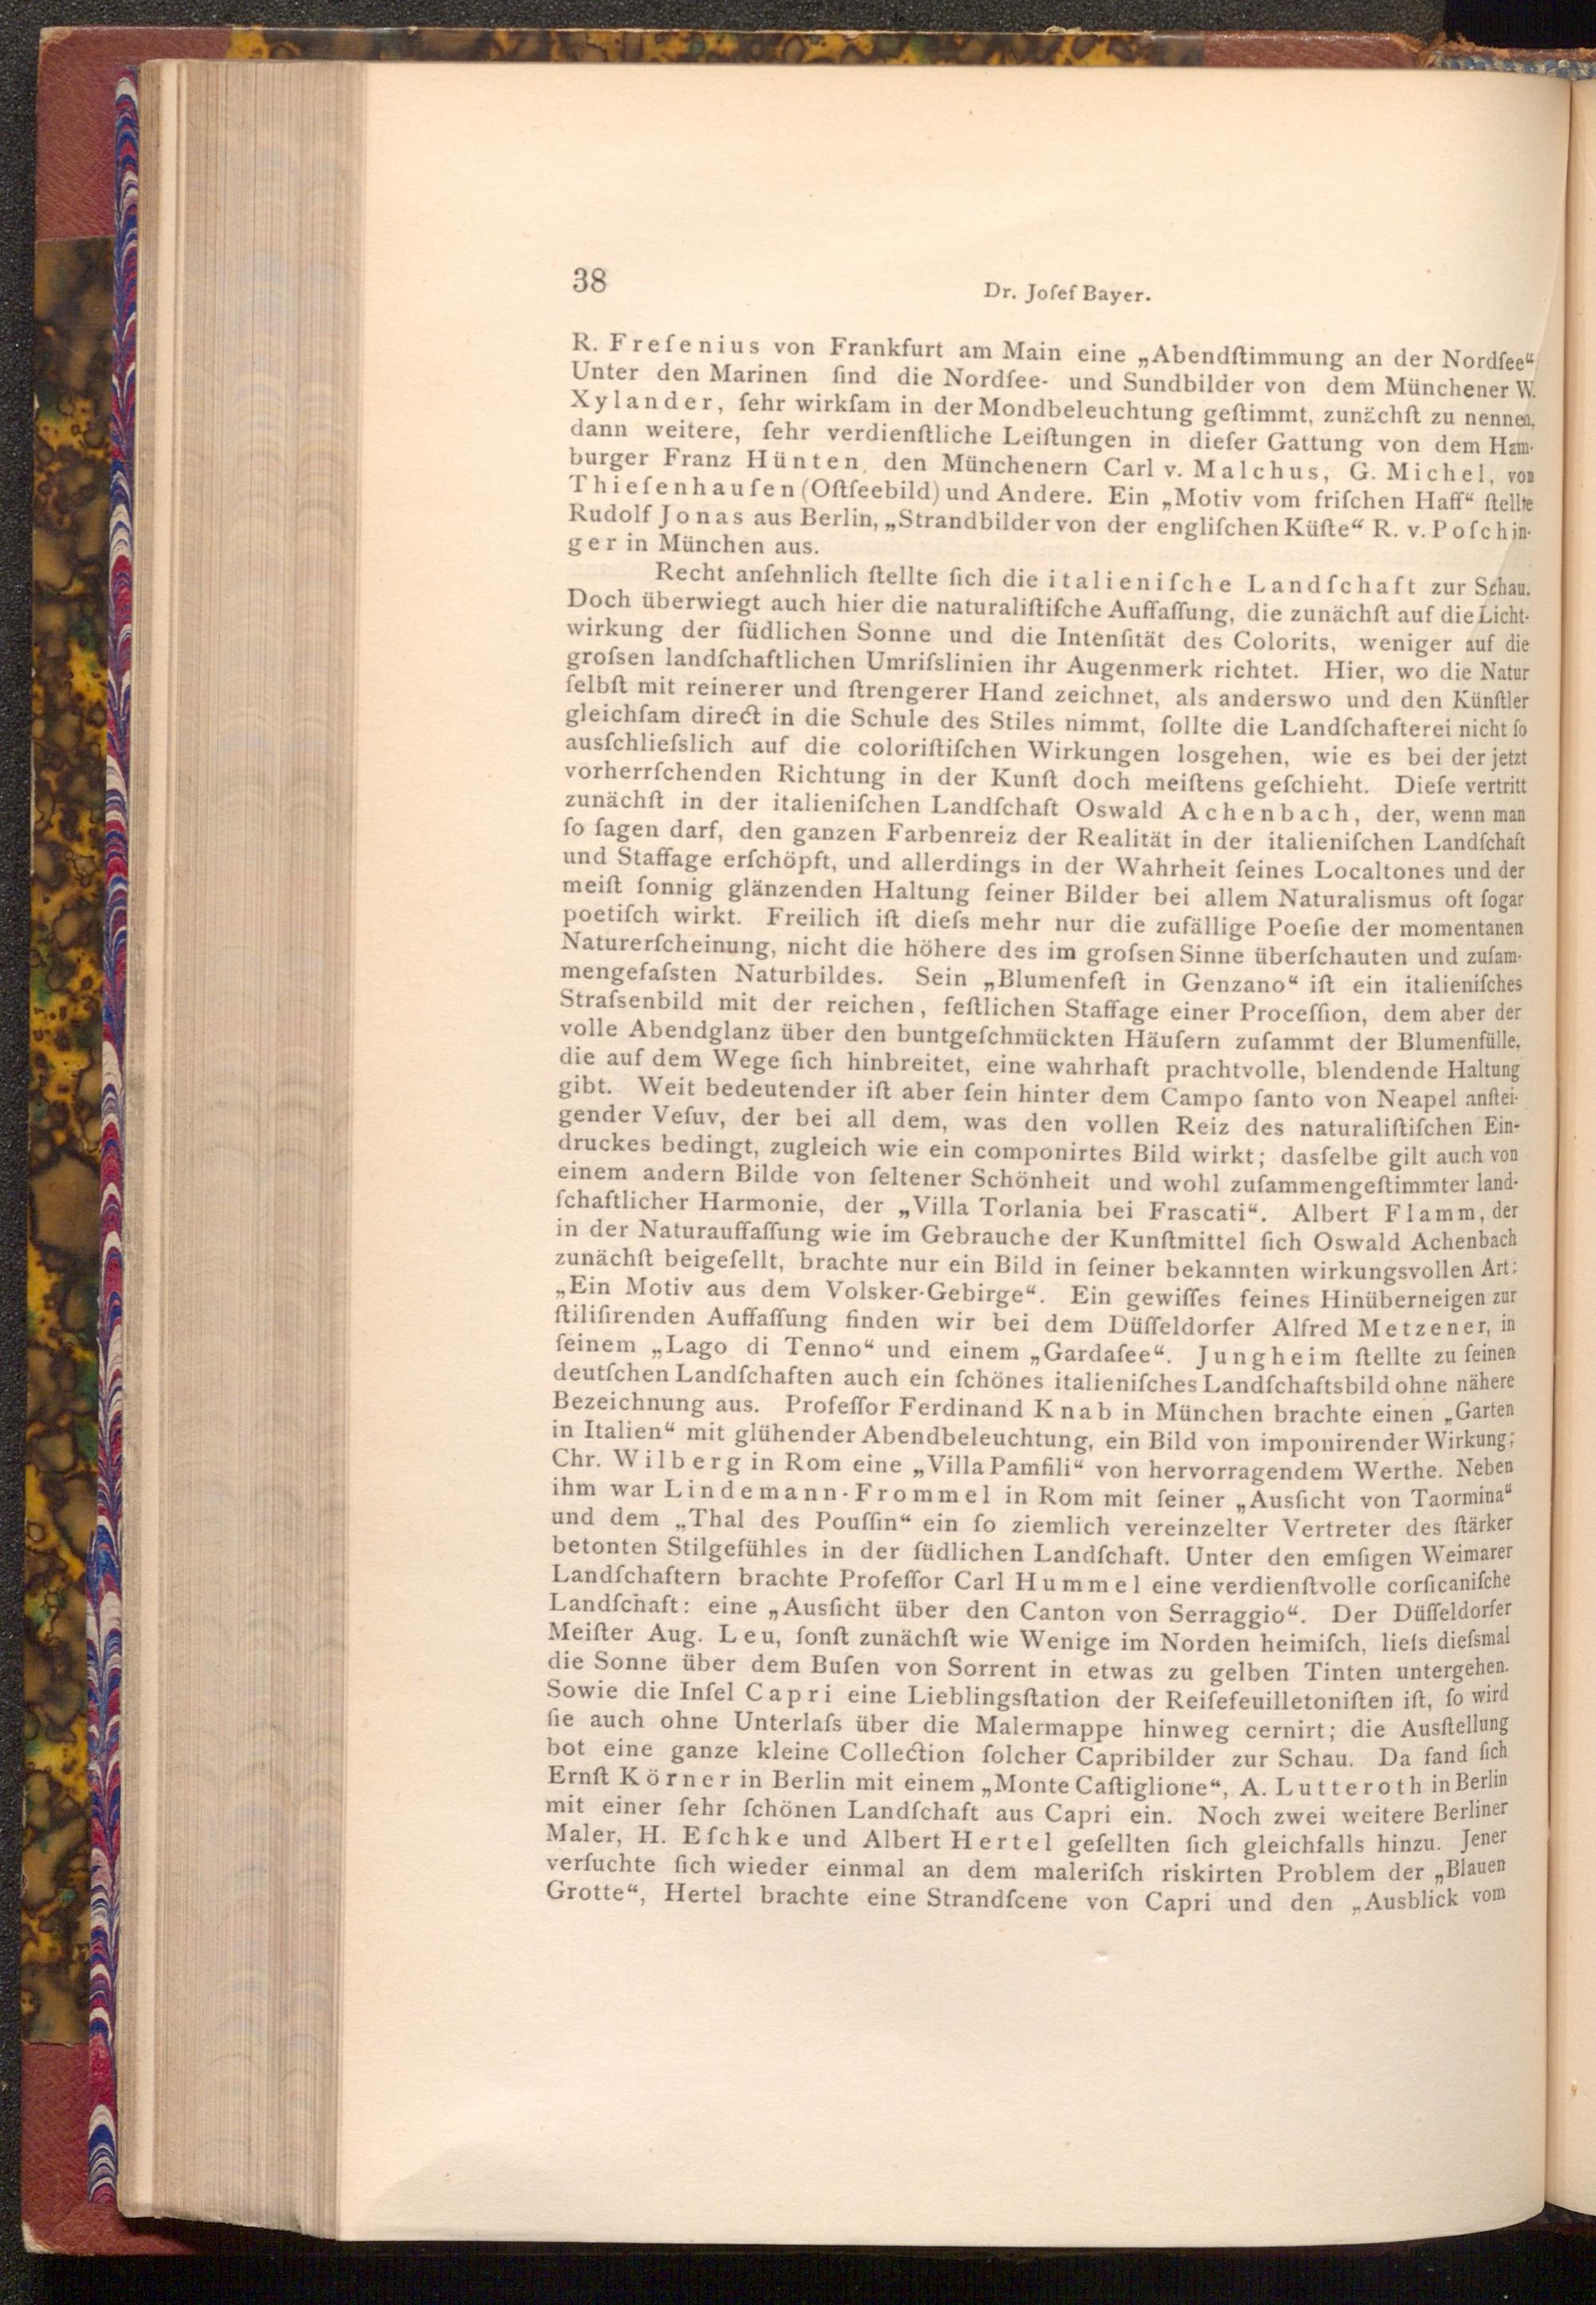 38
Dr. Joſef Bayer.
R. Freſenius von Frankfurt am Main eine „Abendſtimmung an der Nordſee“.
Unter den Marinen ſind die Nordſee- und Sundbilder von dem Münchener W.
Xylander, ſehr wirkſam in der Mondbeleuchtung geſtimmt, zunächſt zu nennen,
dann weitere, ſehr verdienſtliche Leiſtungen in dieſer Gattung von dem Ham-
burger Franz Hünten, den Münchenern Carl v. Malchus, G. Michel, von
Thieſenhauſen (Oſtſeebild) und Andere. Ein „Motiv vom friſchen Haff“ ſtellte
Rudolf Jonas aus Berlin, „Strandbilder von der engliſchen Küſte“ R. v. Poſchin-
ger in München aus.
Recht anſehnlich ſtellte ſich die italieniſche Landſchaft zur Schau.
Doch überwiegt auch hier die naturaliſtiſche Auffaſſung, die zunächſt auf die Licht-
wirkung der ſüdlichen Sonne und die Intenſität des Colorits, weniger auf die
groſsen landſchaftlichen Umriſslinien ihr Augenmerk richtet. Hier, wo die Natur
ſelbſt mit reinerer und ſtrengerer Hand zeichnet, als anderswo und den Künſtler
gleichſam direct in die Schule des Stiles nimmt, ſollte die Landſchafterei nicht ſo
ausſchlieſslich auf die coloriſtiſchen Wirkungen losgehen, wie es bei der jetzt
vorherrſchenden Richtung in der Kunſt doch meiſtens geſchieht. Dieſe vertritt
zunächſt in der italieniſchen Landſchaft Oswald Achenbach, der, wenn man
ſo ſagen darf, den ganzen Farbenreiz der Realität in der italieniſchen Landſchaft
und Staffage erſchöpft, und allerdings in der Wahrheit ſeines Localtones und der
meiſt ſonnig glänzenden Haltung ſeiner Bilder bei allem Naturalismus oft ſogar
poetiſch wirkt. Freilich iſt dieſs mehr nur die zufällige Poeſie der momentanen
Naturerſcheinung, nicht die höhere des im groſsen Sinne überſchauten und zuſam-
mengefaſsten Naturbildes. Sein „Blumenfeſt in Genzano“ iſt ein italieniſches
Straſsenbild mit der reichen, feſtlichen Staffage einer Proceſſion, dem aber der
volle Abendglanz über den buntgeſchmückten Häuſern zuſammt der Blumenfülle,
die auf dem Wege ſich hinbreitet, eine wahrhaft prachtvolle, blendende Haltung
gibt. Weit bedeutender iſt aber ſein hinter dem Campo ſanto von Neapel anſtei-
gender Veſuv, der bei all dem, was den vollen Reiz des naturaliſtiſchen Ein-
druckes bedingt, zugleich wie ein componirtes Bild wirkt; dasſelbe gilt auch von
einem andern Bilde von ſeltener Schönheit und wohl zuſammengeſtimmter land-
ſchaftlicher Harmonie, der „Villa Torlania bei Frascati“. Albert Flamm, der
in der Naturauffaſſung wie im Gebrauche der Kunſtmittel ſich Oswald Achenbach
zunächſt beigeſellt, brachte nur ein Bild in ſeiner bekannten wirkungsvollen Art:
„Ein Motiv aus dem Volsker-Gebirge“. Ein gewiſſes feines Hinüberneigen zur
ſtiliſirenden Auffaſſung finden wir bei dem Düſſeldorfer Alfred Metzener, in
ſeinem „Lago di Tenno“ und einem „Gardaſee“. Jungheim ſtellte zu ſeinen
deutſchen Landſchaften auch ein ſchönes italieniſches Landſchaftsbild ohne nähere
Bezeichnung aus. Profeſſor Ferdinand Knab in München brachte einen „Garten
in Italien“ mit glühender Abendbeleuchtung, ein Bild von imponirender Wirkung;
Chr. Wilberg in Rom eine „Villa Pamfili“ von hervorragendem Werthe. Neben
ihm war Lindemann-Frommel in Rom mit ſeiner „Ausſicht von Taormina“
und dem „Thal des Pouſſin“ ein ſo ziemlich vereinzelter Vertreter des ſtärker
betonten Stilgefühles in der ſüdlichen Landſchaft. Unter den emſigen Weimarer
Landſchaftern brachte Profeſſor Carl Hummel eine verdienſtvolle corſicaniſche
Landſchaft: eine „Ausſicht über den Canton von Serraggio“. Der Düſſeldorfer
Meiſter Aug. Leu, ſonſt zunächſt wie Wenige im Norden heimiſch, lieſs dieſsmal
die Sonne über dem Buſen von Sorrent in etwas zu gelben Tinten untergehen.
Sowie die Inſel Capri eine Lieblingsſtation der Reiſefeuilletoniſten iſt, ſo wird
ſie auch ohne Unterlaſs über die Malermappe hinweg cernirt; die Ausſtellung
bot eine ganze kleine Collection ſolcher Capribilder zur Schau. Da fand ſich
Ernſt Körner in Berlin mit einem „Monte Caſtiglione“, A. Lutteroth in Berlin
mit einer ſehr ſchönen Landſchaft aus Capri ein. Noch zwei weitere Berliner
Maler, H. Eſchke und Albert Hertel geſellten ſich gleichfalls hinzu. Jener
verſuchte ſich wieder einmal an dem maleriſch riskirten Problem der „Blauen
Grotte“, Hertel brachte eine Strandſcene von Capri und den „Ausblick vom